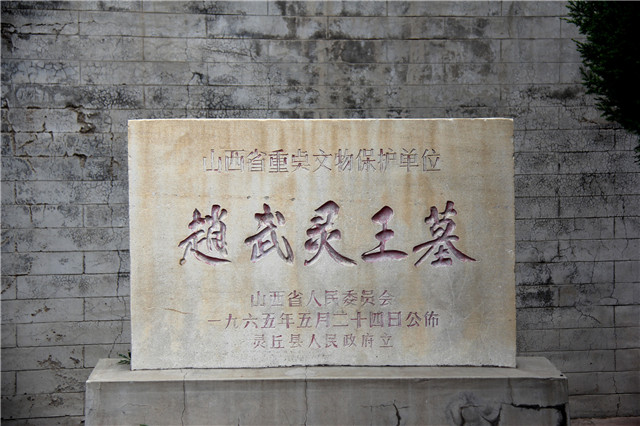 山西省重点文物保护单位
趙武灵王墓
山西省人民委员会
一九六五年五月二十四日公佈
灵丘县人民政府立